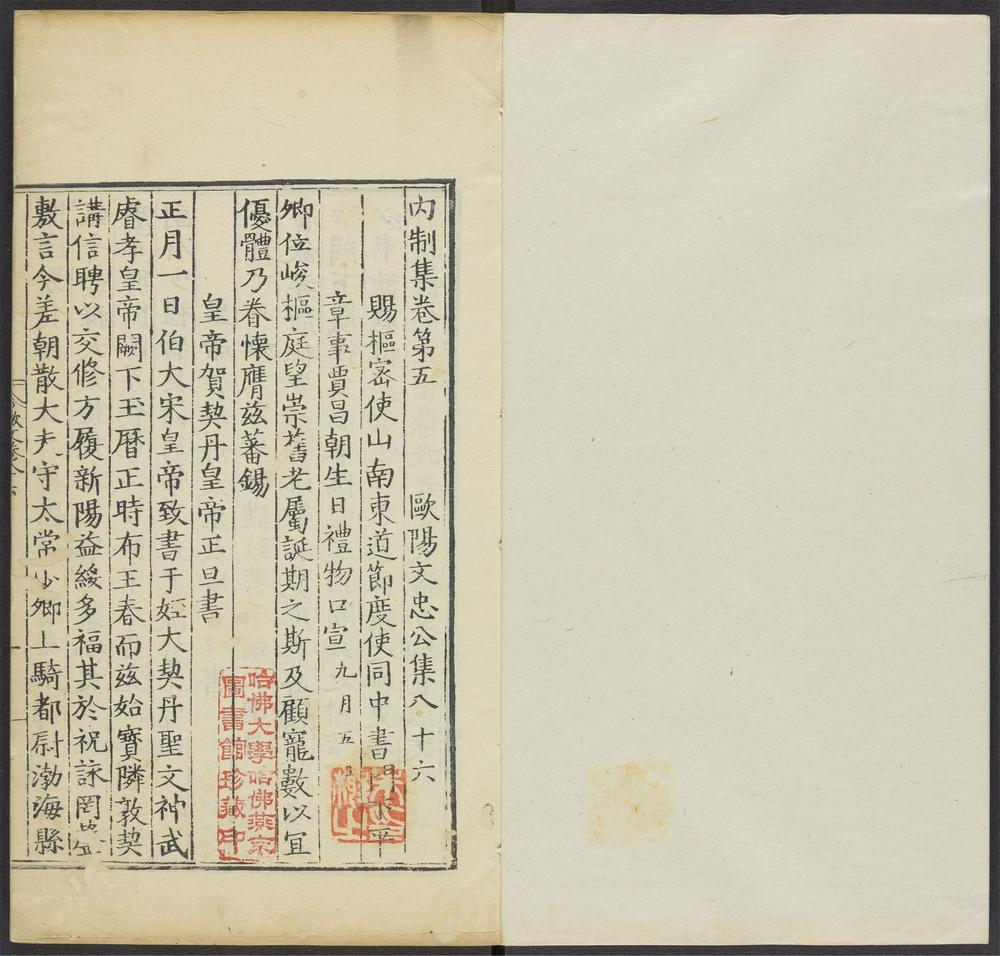 內制集卷第五 歐陽文忠公集八十六
賜樞密使山南東道節度使同中書門下平
章事賈昌朝生日禮物口宣九月五日
卿位峻樞庭望崇舊老屬誕期之斯及顧寵數以宜
優體乃眷懷膺茲蕃錫
皇帝賀契丹皇帝正旦書
正月一日伯大宋皇帝致書于姪大契丹聖文神武
睿孝皇帝闕下玉曆正時布王春而茲始寶隣敦契
講信聘以交修方履新陽益綏多福其於祝詠罔
敷言今差朝散大夫守太常少卿上騎都尉渤海縣
哈佛大學哈佛燕京
圖書館珍藏印